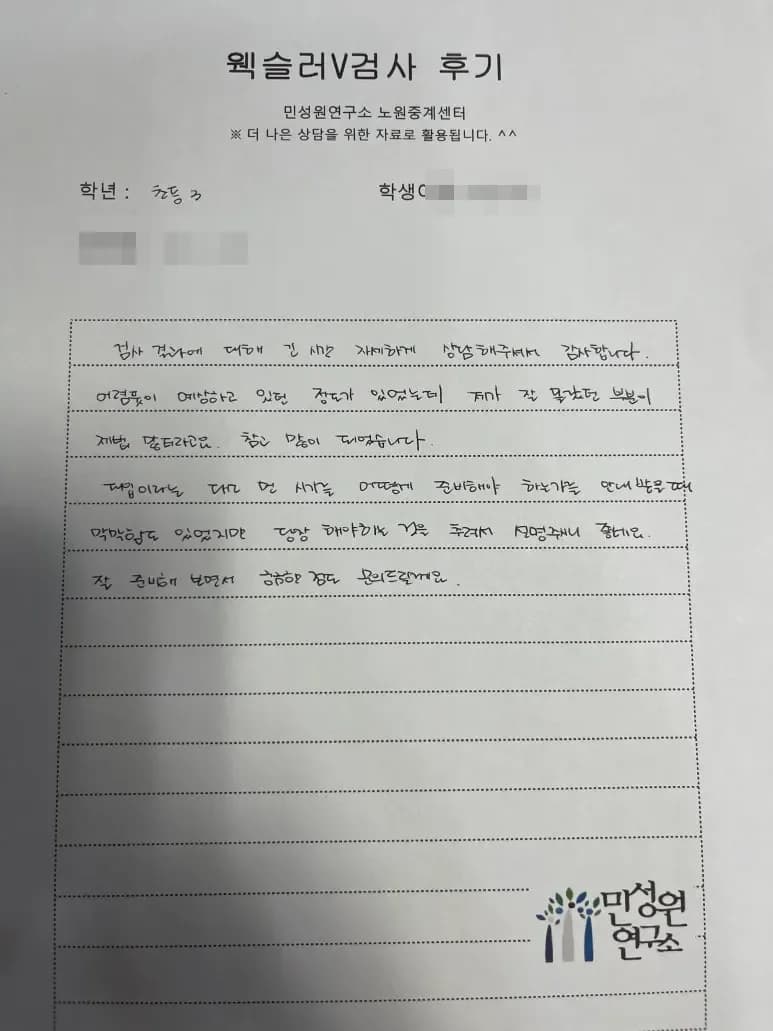 웩슬러V검사 후기
민성원연구소 노원중계센터
※ 더 나은 상담을 위한 자료로 활용됩니다. ^^
학년 : 초등 3 학생이
검사 결과에 대해 긴 시간 자세하게 상담해주셔서 감사합니다.
어렴풋이 예상하고 있던 정도가 있었는데 제가 잘 몰랐던 부분이
제법 많더라고요. 참고 많이 되었습니다.
대입이라는 다소 먼 시기를 어떻게 준비해야 하는가를 안내 받을 때
막막함도 있었지만 당장 해야하는 것을 추려서 설명주니 좋네요.
잘 준비해 보면서 궁금한 점도 문의드릴게요.
민성원
연구소